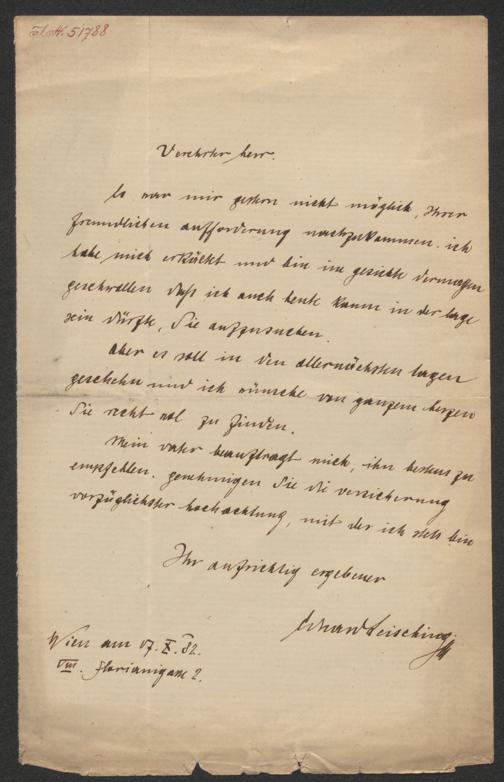 I. N. 51788
Verehrter herr.
Es war mir gestern nicht möglich, Ihrer
freundlichen aufforderung nachzukommen. ich
habe mich erkältet und bin im gesichte dermassen
geschwollen daß ich auch heute kaum in der lage
sein dürfte, Sie aufzusuchen.
Aber es soll in den allernächsten tagen
geschehn und ich wünsche von ganzem herzen
Sie recht wol zu finden.
Mein vater beauftragt mich, ihn bestens zu
empfehlen. genehmigen Sie die versicherung
vorzüglichster hochachtung, mit der ich stets bin
Ihr aufrichtig ergebener
Eduard Leisching.
Wien am 17. X. 82.
VIII. Florianigasse 2.